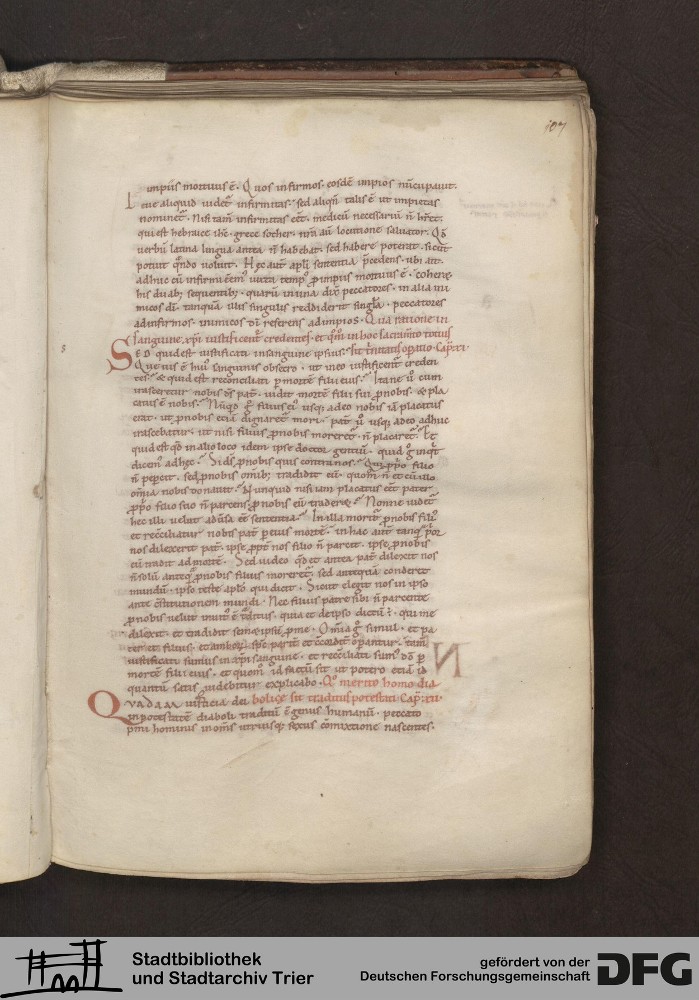 107
impiis mortuus ē. Quos infirmos. eosdē impios nūcupauit.
Leue aliquid uidet̄ infirmitas. sed aliqn̄ talis ē ut impietas
nominet̄. Nisi tam̄ infirmitas eēt. medicū necessariū n̄ hr̄et.
qui est hebraice ih̄c. grece sother. nr̄a aū locutione saluator. Qd̄
uerbū latina lingua antea n̄ habebat. sed habere poterat. sicut
potuit qn̄do uoluit. Hec aut̄ apl̄i sententia p̄cedens. ubi ait.
adhuc cū infirmi eēm᷒ iuxta temp᷒ p̄ impiis mortuus ē. coheret
his duab; sequentib;. quarū in una dix̄ peccatores. in alia ini
micos dī. tanquā illis singulis reddiderit singl̄a. peccatores
ad infirmos. inimicos dī referens ad impios. Qua ratione in
sanguine xp̄i iustificent̄ credentes. et qm̄ in hoc sacram̄to totius
SED quid est iustificati in sanguine ipsius. sit t̄nitatis opatio. Cap. XI.
Que uis ē hui᷒ sanguinis obsecro. ut in eo iustificent̄ creden
tes. & quid est reconciliati p̄ morte filii eius. Ita ne ū cum
irasceretur nobis ds̄ pat̄. uidit morte filii sui p̄ nobis. & pla
catus ē nobis. Nūqd g̊ filius ei᷒ usq; adeo nobis iā placatus
erat. ut p̄ nobis etiā dignaret̄ mori. pat̄ ū usq; adeo adhuc
irascebatur. ut nisi filius p̄ nobis moreret̄. n̄ placaret̄. Et
quid est qd̄ in alio loco idem ipse doctor gentiū. quid g̊ inqt
dicem᷒ ad hec. Si ds̄ p̄ nobis quis contra nos. Qui pp̄o filio
n̄ pepcit. sed p̄ nobis omib; tradidit eū. quom̊ n̄ et cū illo
omnia nobis donauit. Nunquid nisi iam placatus eēt pater
pp̄o filio suo n̄ parcens p̄ nobis eū traderet. Nonne uidet̄
hec illi uelut aduersa ēē sententia. In illa morit̄ p̄ nobis fili᷒
et recc̄iliatur nobis pat̄ p̄ eius morte. in hac aut̄ tanq̄ p̄or
nos dilexerit pat̄. ipse p̄pt̄ nos filio n̄ parcit. ipse p̄ nobis
eū tradit ad morte. Sed uideo qd̄ et antea pat̄ dilexit nos
n̄ solū anteq̄ p̄ nobis filius moreret̄. sed antequā conderet
mundū. ipso teste apl̄o qui dicit. Sicut elegit nos in ipso
ante c̄stitutionem mundi. Nec filius patre sibi n̄ parcente
p̄ nobis uelut inuit᷒ ē t̄ditus. quia et de ipso dictū ÷. qui me
dilexit. et tradidit semetipsū p̄ me. Omnia g̊ simul. et pa
ter et filius. et amborū sp̄c parit̄ et c̄corditer opantur. tam̄
iustificati sumus in xp̄i sanguine. et recc̄iliati sum᷒ dō p̄
morte filii eius. et quom̊ id factū sit ut potero etiā id
quantū satis uidebitur explicabo. Qo merito homo dia
QUADAM iusticia dei bolice sit traditus potestati. Cap. XII.
in potestate diaboli traditū ē genus humanū. peccato
p̄mi hominis in oms̄ utriusq; sexus cōmixtione nascentes.
N
Stadtbibliothek
und Stadtarchiv Trier
gefördert von der
Deutschen Forschungsgemeinschaft
DFG